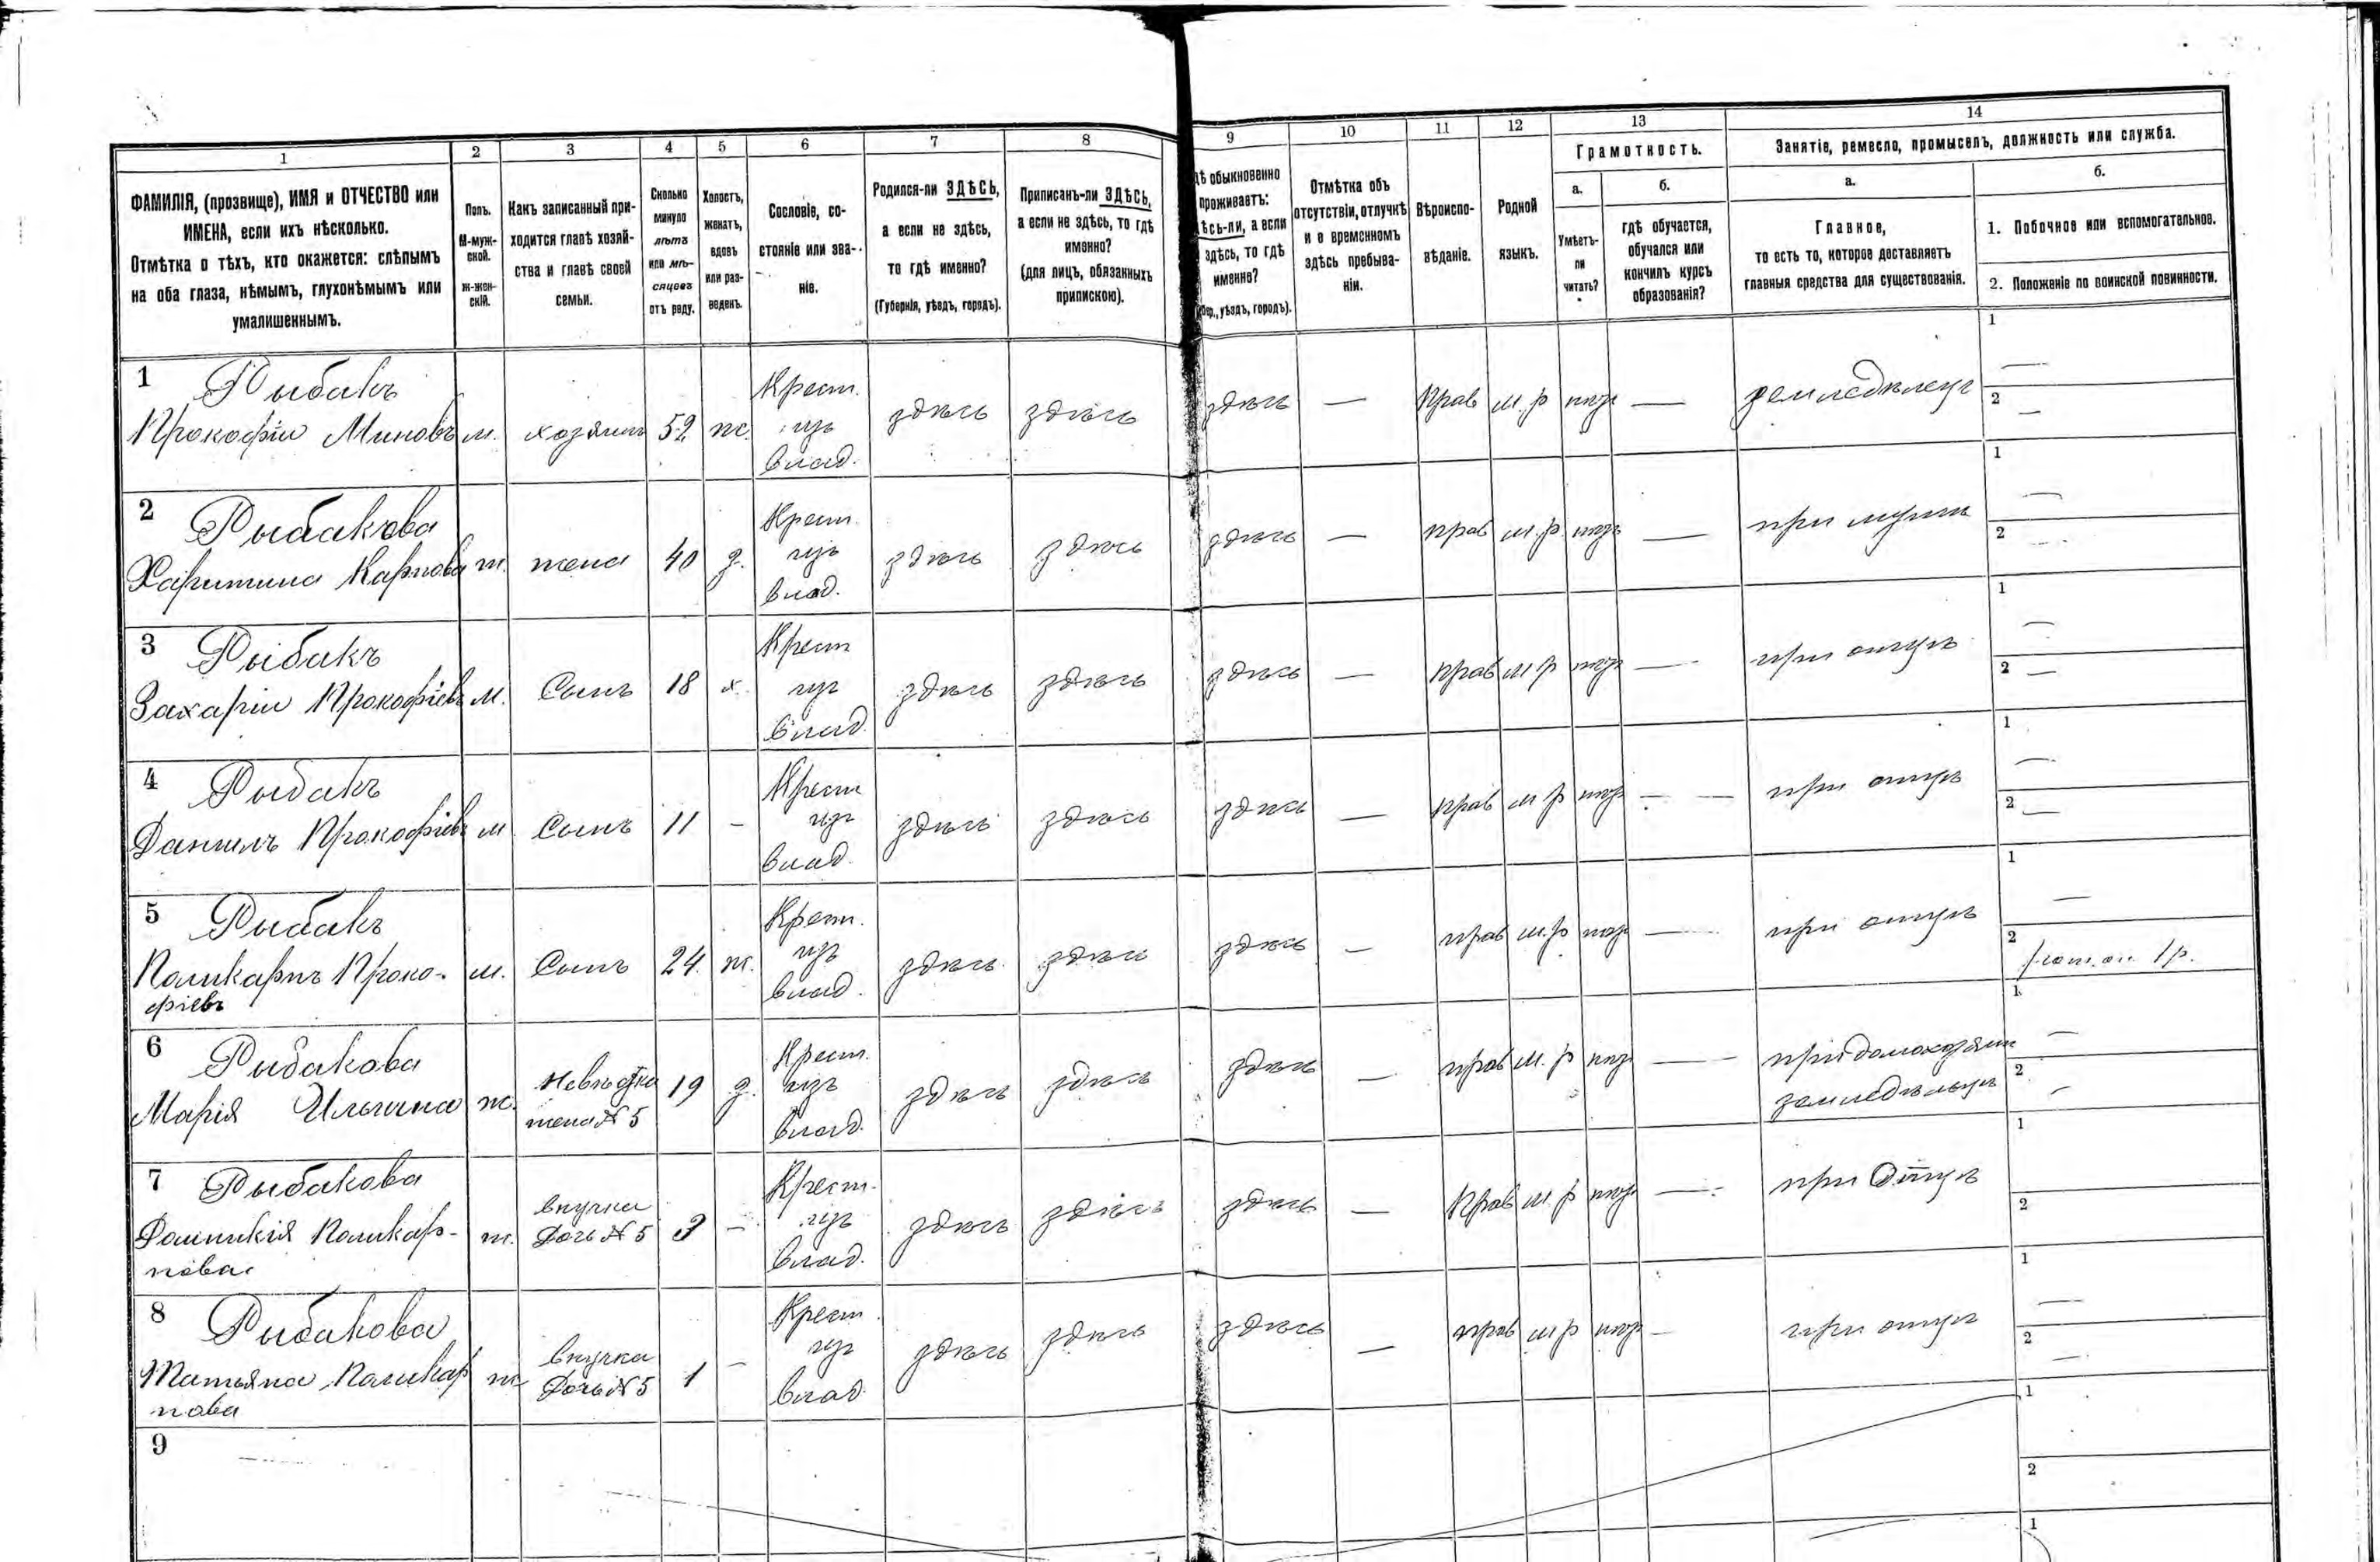 1 2 3 4 5 6 7 8 9 10 11 12 13 14
ФАМИЛІЯ, (прозвище), ИМЯ и ОТЧЕСТВО или
ИМЕНА, если ихъ нѣсколько.
Отмѣтка о тѣхъ, кто окажется: слѣпымъ
на оба глаза, нѣмымъ, глухонѣмымъ или
умалишеннымъ.
Полъ.
М-муж-
ской.
ж-жен-
скій.
Какъ записанный при-
ходится главѣ хозяй-
ства и главѣ своей
семьи.
Сколько
минуло
лѣтъ
или мѣ-
сяцевъ
отъ роду.
Холостъ,
женатъ,
вдовъ
или раз-
веденъ.
Сословіе, со-
стояніе или зва-
ніе.
Родился-ли ЗДѢСЬ,
а если не здѣсь,
то гдѣ именно?
(Губернія, уѣздъ, городъ).
Приписанъ-ли ЗДѢСЬ,
а если не здѣсь, то гдѣ
именно?
(для лицъ, обязанныхъ
припискою).
дѣ обыкновенно
проживаетъ:
ѣсь-ли, а если
здѣсь, то гдѣ
именно?
уѣздъ, городъ).
Отмѣтка объ
отсутствіи, отлучкѣ
и о временномъ
здѣсь пребыва-
ніи.
Вѣроиспо-
вѣданіе.
Родной
языкъ.
Грамотность.
а.
Умѣетъ-
ли
читать?
б.
гдѣ обучается,
обучался или
кончилъ курсъ
образованія?
Занятіе, ремесло, промыселъ, должность или служба.
а.
Главное,
то есть то, которое доставляетъ
главныя средства для существованія.
б.
1. Побочное или вспомогательное.
2. Положеніе по воинской повинности.
1 Рыбакъ
Прокофій Миновъ м. хозяинъ 52 ж. Крест. изъ влад. здѣсь здѣсь здѣсь — прав м.р — земледѣлецъ
1 —
2 —
2 Рыбакова
Харитина Карпова ж. жена 40 з. Крест. изъ влад. здѣсь здѣсь здѣсь — прав м.р. — при мужѣ
1 —
2 —
3 Рыбакъ
Захарій Прокофіевъ м. Сынъ 18 х. Крест изъ влад здѣсь здѣсь здѣсь — прав м р — при отцѣ
1 —
2 —
4 Рыбакъ
Даніилъ Прокофіевъ м Сынъ 11 – Крест изъ влад. здѣсь здѣсь здѣсь — прав м р — при отцѣ
1 —
2 —
5 Рыбакъ
Поликарпъ Проко-
фіевъ м. Сынъ 24. ж. Крест. изъ влад. здѣсь здѣсь здѣсь — прав м.р — при отцѣ
1 —
2 1 р.
6 Рыбакова
Марія Ильична ж. Невѣстка
жена № 5 19 з. Крест. изъ влад. здѣсь здѣсь здѣсь — прав м. р — при домохозяинѣ
земледѣльцѣ
1 —
2 –
7 Рыбакова
Домникія Поликар-
пова ж. внучка
Дочь № 5 3 – Крест. изъ влад. здѣсь здѣсь здѣсь — прав м р — при Отцѣ
1
2
8 Рыбакова
Татьяна Поликар
пова ж внучка
Дочь № 5 1 – Крест. изъ влад здѣсь здѣсь здѣсь — прав м р — при отцѣ
1 —
2 —
9
1
2
1